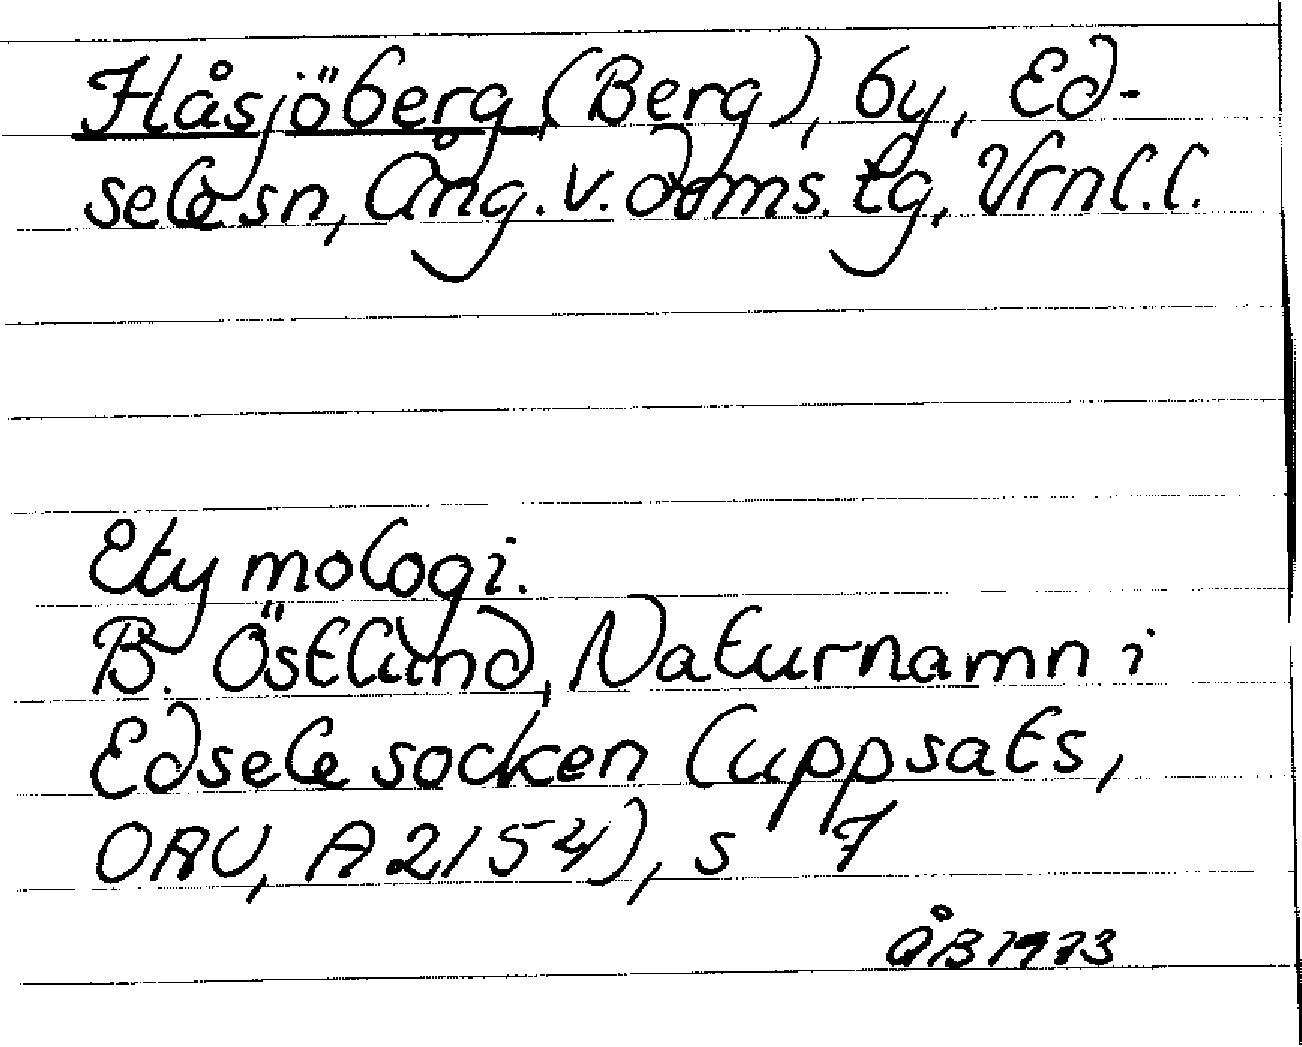 Flåsjöberg (Berg), by, Ed-
sele sn, Ång. v. doms. tg, Vrnl. l.
Etymologi.
B. Östlund, Naturnamn i
Edsele socken (uppsats,
OAU, A 2154), s 7
ÅB 1973